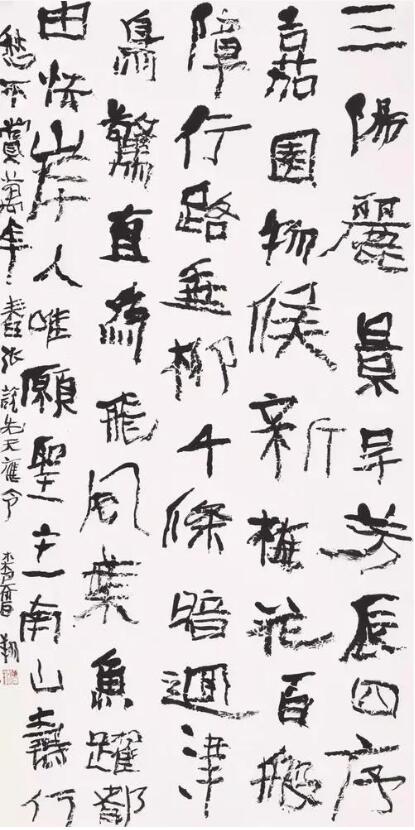 三陽麗景早芳辰四序
嘉園物候新梅花百般
障行路垂柳千條暗迴津
鳥驚直為飛風葉魚躍都
由怯岸人唯願聖主南山壽何
愁不賞萬年春張說先天應令